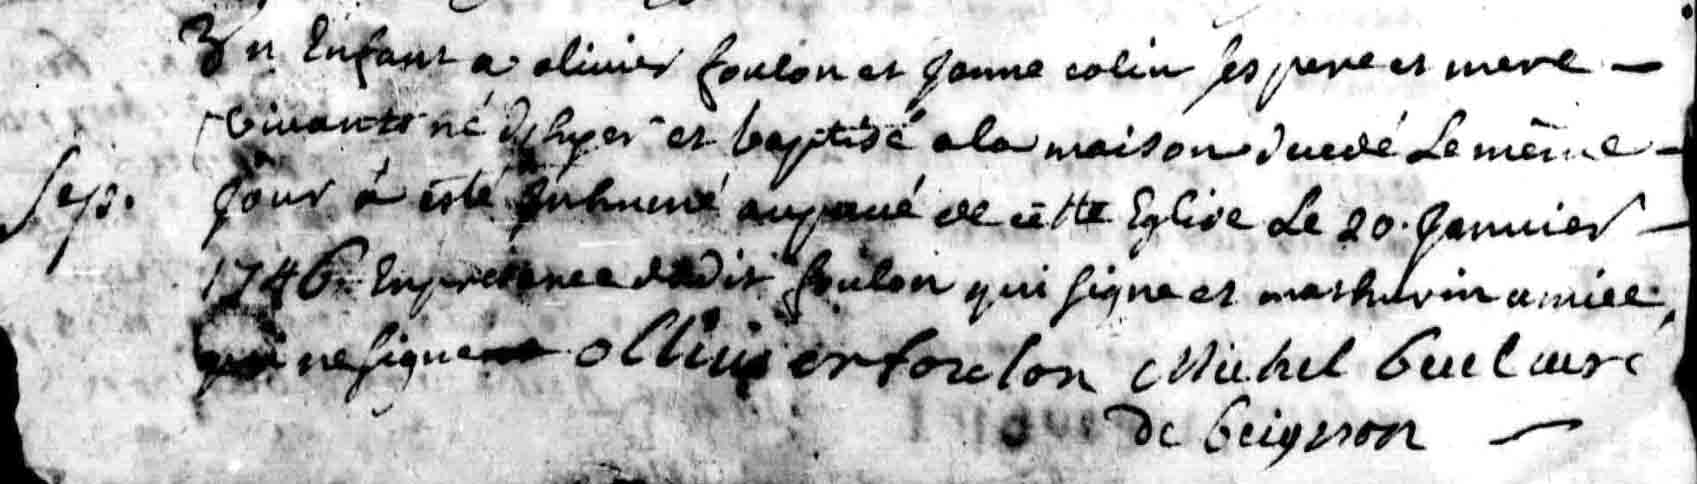 Un Enfant a olivier foulon et Janne colin ses pere et mere –
vivants né d'hyer et baptisé a la maison du curé Le même –
Sep. Jour à êté Inhumé au pavé de cette Eglise Le 20. Janvier –
1746. En presence dudit foulon qui signe et mathurin amice,
qui ne signe ollivier foulon Michel Guel cure
de beignon –